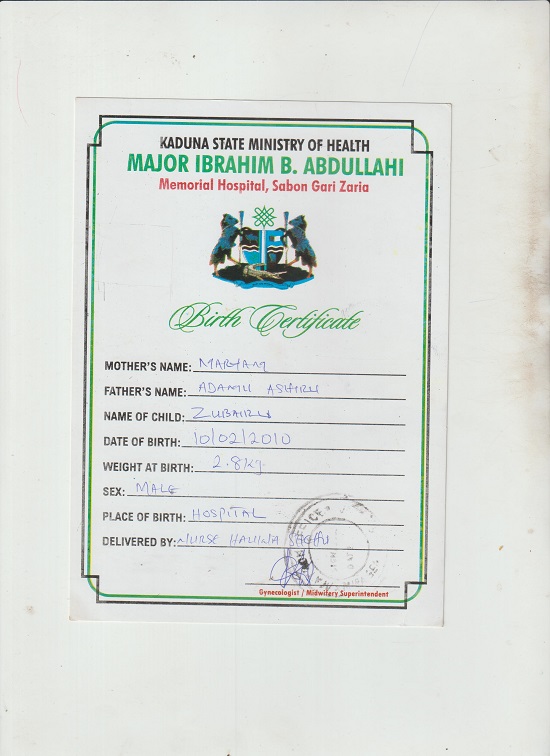 KADUNA STATE MINISTRY OF HEALTH
MAJOR IBRAHIM B. ABDULLAHI
Memorial Hospital, Sabon Gari Zaria
Birth Certificate
MOTHER'S NAME: MARYAM
FATHER'S NAME: ADAMU ASHIRU
NAME OF CHILD: ZUBAIRU
DATE OF BIRTH: 10/02/2010
WEIGHT AT BIRTH: 2.8kg
SEX: MALE
PLACE OF BIRTH: HOSPITAL
DELIVERED BY: NURSE
Gynecologist / Midwifery Superintendent